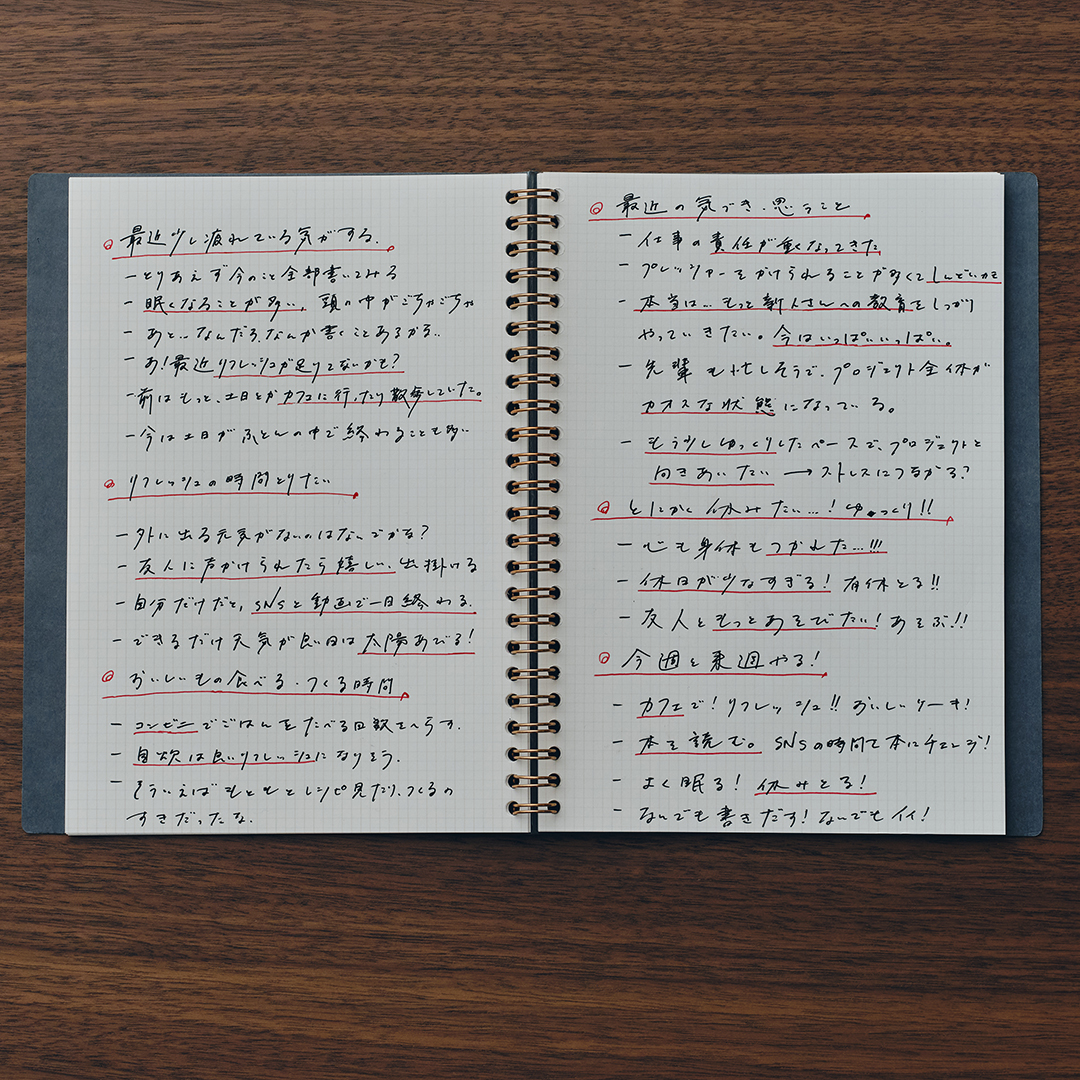 最近少し疲れている気がする.
- とりあえず今のこと全部書いてみる
- 眠くなることが多い, 頭の中がごちゃごちゃ
- あと…なんだろ,なんか書くことあるかな..
- あ!最近リフレッシュが足りてないかも?
- 前はもっと、土日とかカフェに行ったり散歩していた。
- 今は土日がふとんの中で終わることも多い
リフレッシュの時間とりたい
- 外に出る元気がないのはなんでかな?
- 友人に声かけられたら嬉しい、出掛ける
- 自分だけだと, SNSと動画で一日終わる.
- できるだけ天気が良い日は太陽あびる!
おいしいもの食べる・つくる時間
- コンビニでごはんをたべる回数をへらす.
- 自炊は良いリフレッシュになりそう.
- そういえばもともとレシピ見たり、つくるの
すきだったな.
最近の気づき・思うこと
- 仕事の責任が重くなってきた
- プレッシャーをかけられることが多くてしんどいかも
- 本当は…もっと新人さんへの教育をしっかり
やっていきたい。今はいっぱいいっぱい。
- 先輩も忙しそうで、プロジェクト全体が
カオスな状態になっている。
- もう少しゆっくりしたペースで、プロジェクトと
向きあいたい → ストレスにつながる?
とにかく休みたい…! ゆっくり!!
- 心も身体もつかれた…!!!
- 休日が少なすぎる! 有休とる!!
- 友人ともっとあそびたい! あそぶ!!
今週と来週やる!
- カフェで! リフレッシュ!! おいしいケーキ!
- 本を読む。 SNSの時間で本にチェンジ!
- よく眠る! 休みとる!
- なんでも書きだす! なんでもイイ!